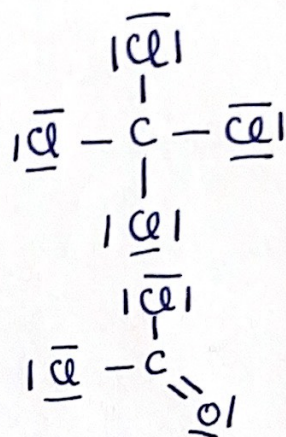 |Cl|
|Cl – C – Cl
|Cl|
|Cl|
|Cl – C
O|